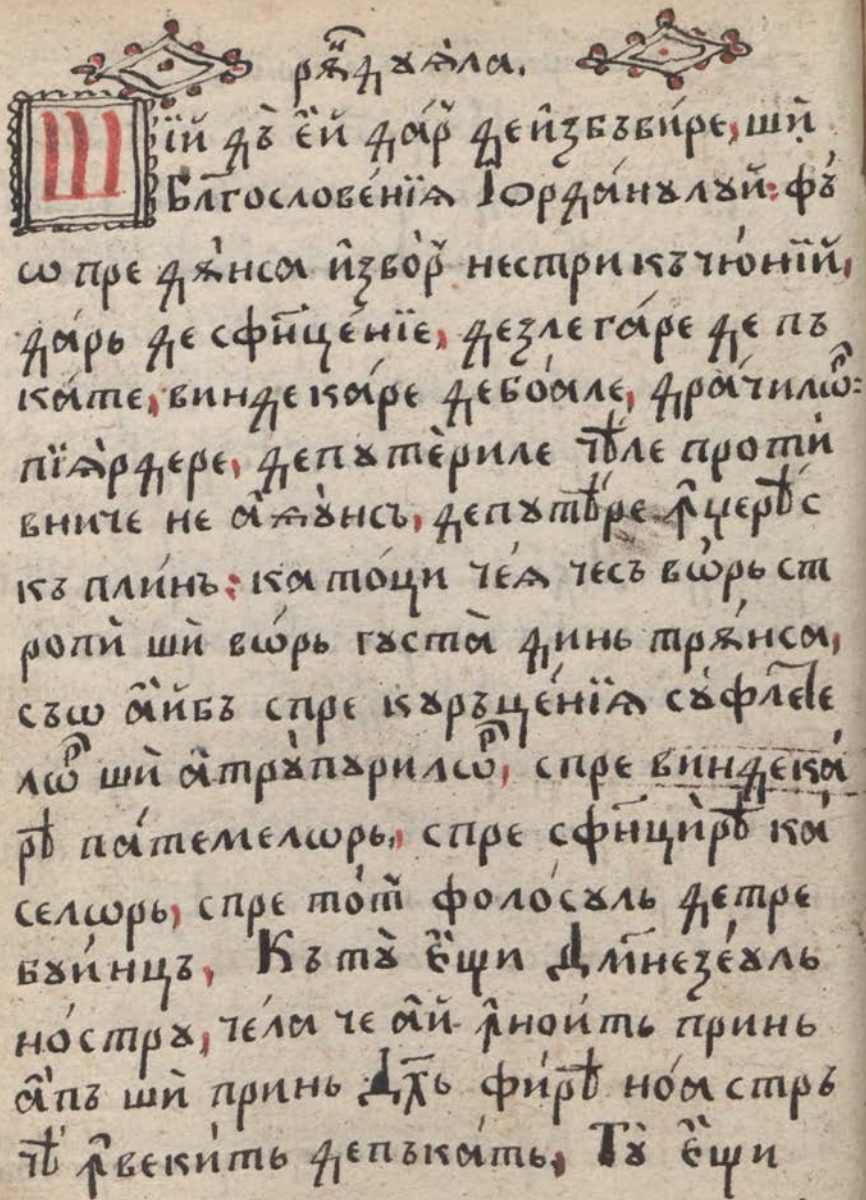 рѫ҆ндꙋѧ́ла.
Шїй дъ є҆́й да́р де и҆збъви́ре, шѝ
Бл҃гослове́нїѧ І҆орда́нꙋлꙋй: фъ́
ѡ пре дѫ́нса и҆зво́р нестрикъчю́нїй,
да́рь де сфн҃це́нїе, дезлега́ре де пъ
ка́те, виндека́ре дебо́але, дра́чилѡр:
пїѧ́рдере, депꙋтѐриле чѣле проти́
вниче не а҆ѫꙋ́нсъ, депꙋтѣ́ре ꙟ҆церѣ́с
къ пли́нъ: ка то́ци че́ѧ чесъ вѡ́рь ст
ропѝ шѝ вѡ́рь гꙋста̀ динь трѫ́нса,
съѡ а҆́йбъ спре кꙋръце́нїѧ сꙋ́фле
лѡр шѝ а҆трꙋ́пꙋрилѡр, спре виндека́
рѣ па́темелѡрь, спре сфн҃ци́рѣ ка́
селѡрь, спре то́т фоло́сꙋль детре
бꙋи́нцъ, Къ тꙋ̀ є҆́щи Дмн҃езе́ꙋль
но́стрꙋ, че́ла че а҆́й ꙟ҆нои́ть принь
а҆́пъ шѝ принь Дх҃ь фи́рѣ но́астръ
чѣ ꙟ҆векѝть депъка́ть, Тꙋ̀ є҆́щи